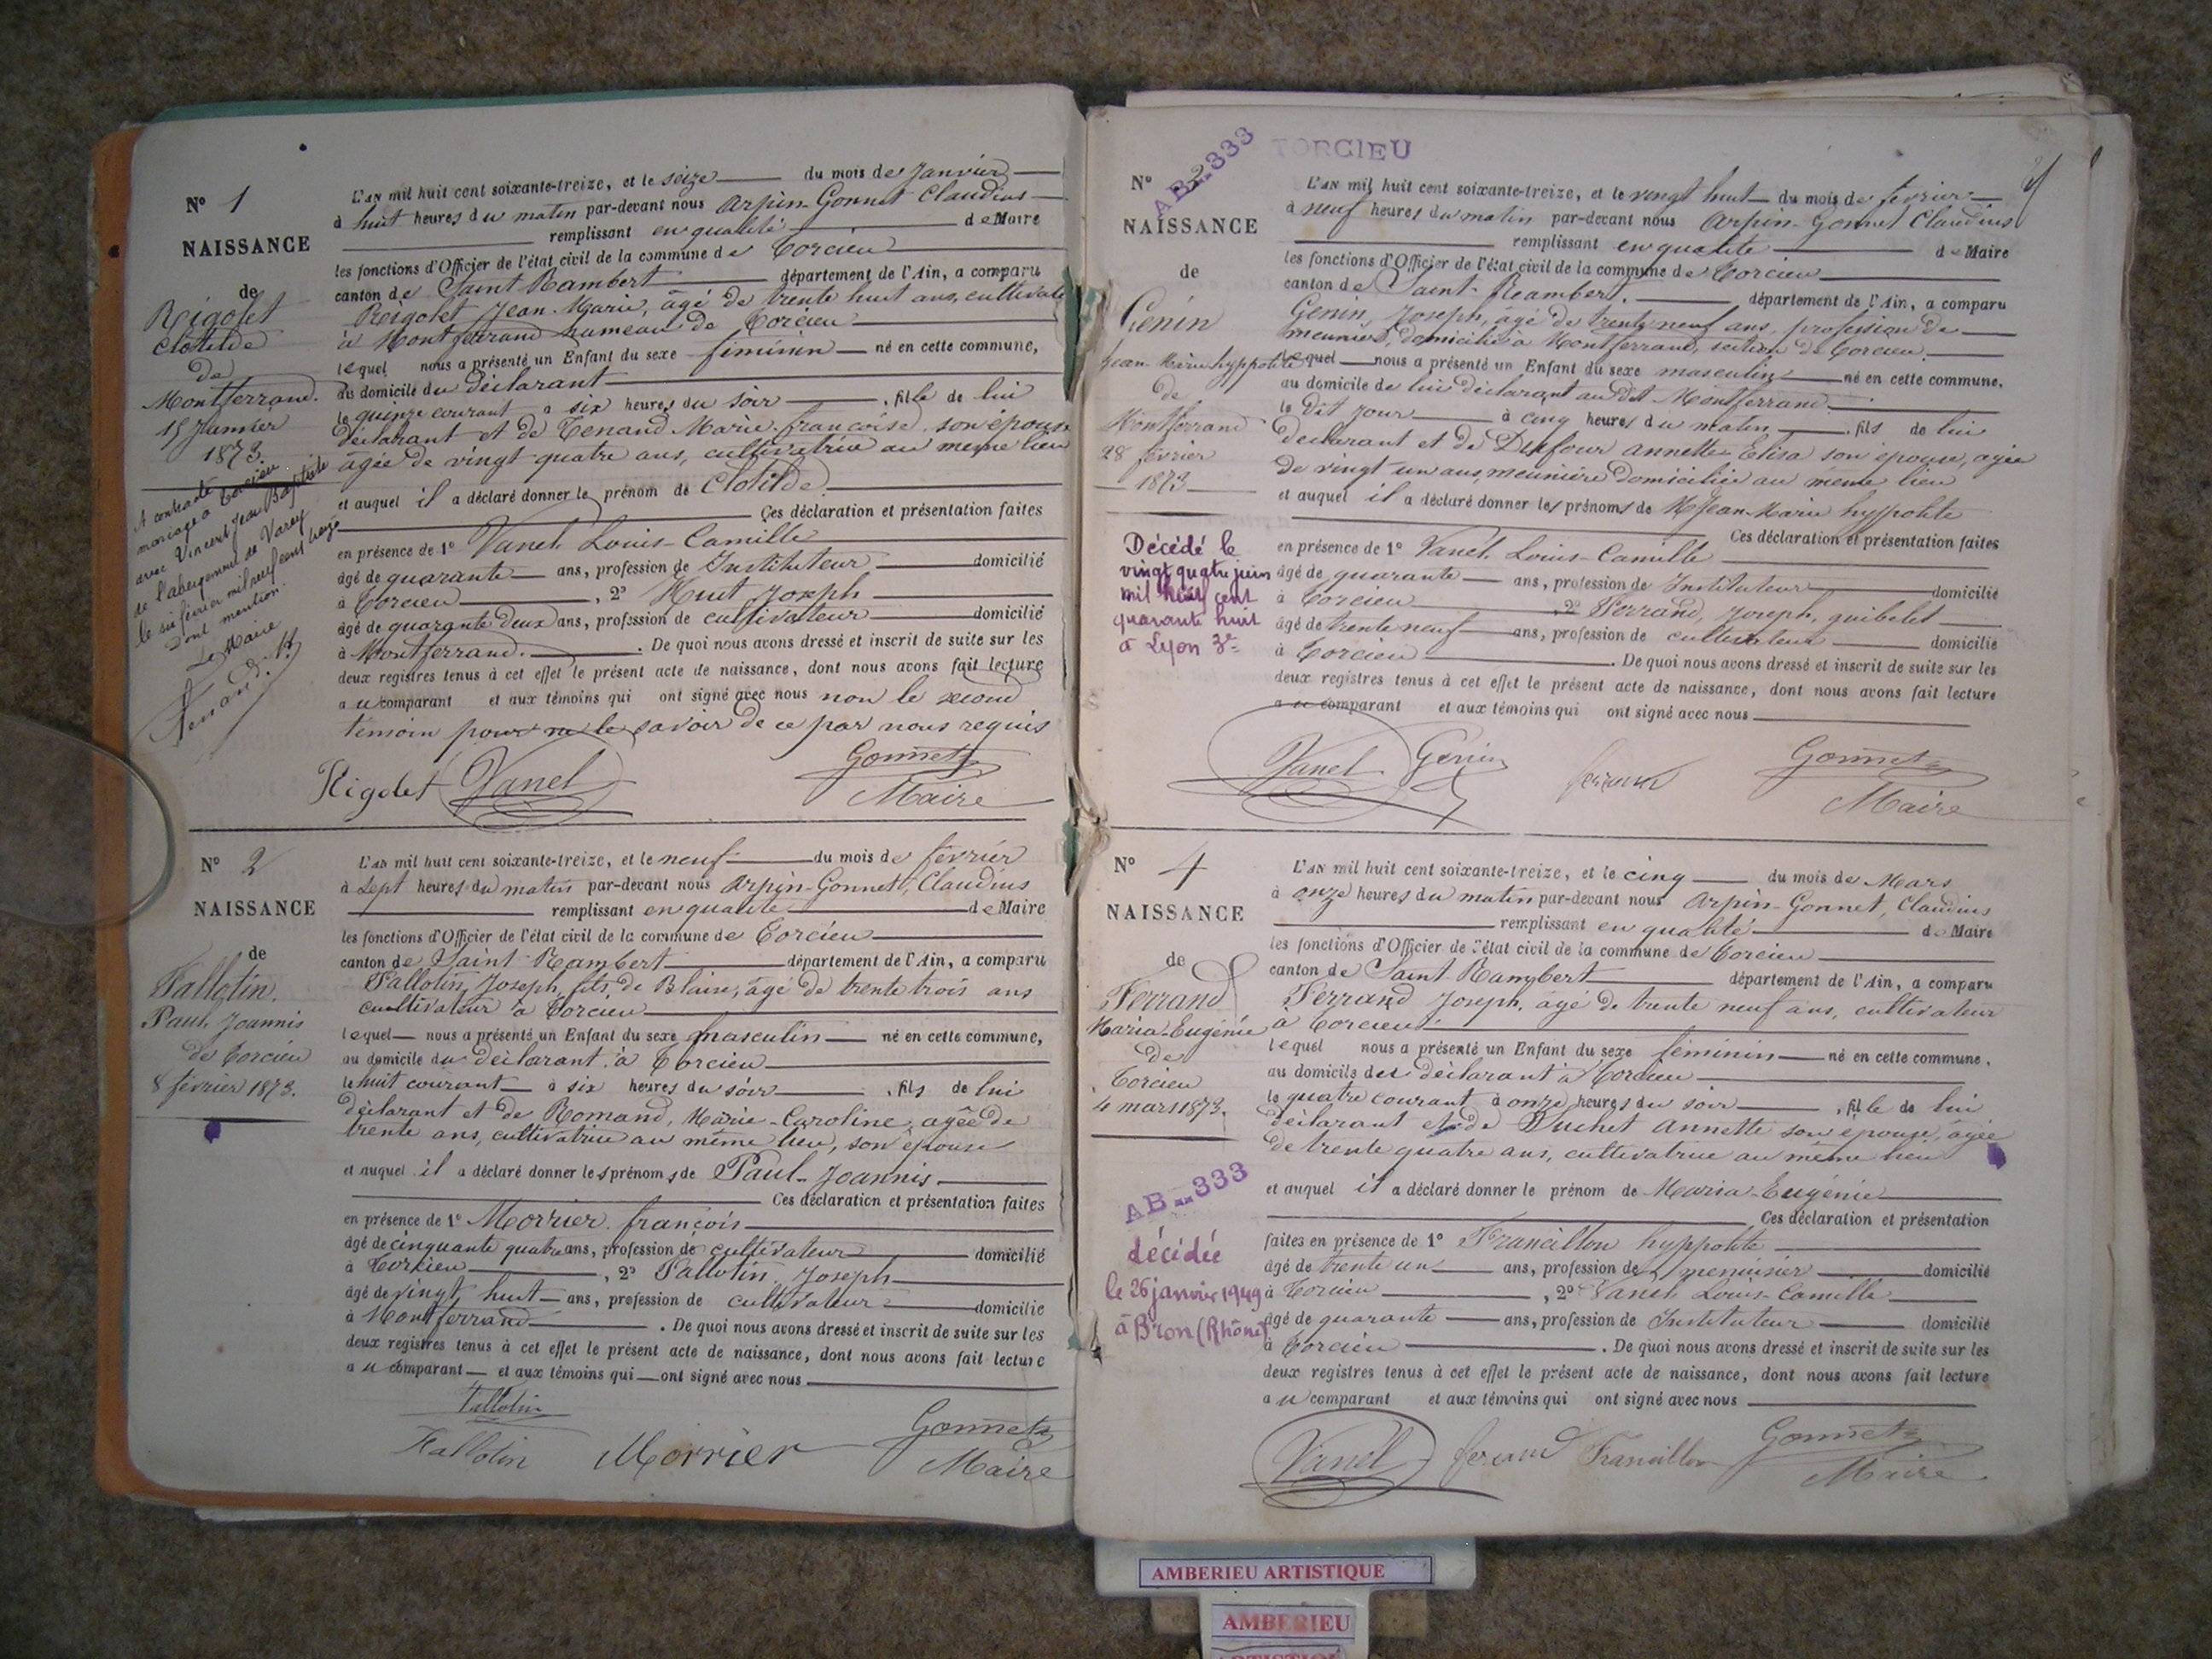 N° 1
NAISSANCE
de
Rigolet
Clotilde
de
Montferrand.
15 Janvier
1873.
A contracté
mariage à Torcieu
avec Vincent Jean Baptiste
de l'abergement de Varey
le six février mil neuf cent treize
Dont mention.
Le Maire
L'an mil huit cent soixante-treize, et le seize du mois de Janvier
à huit heures du matin par-devant nous Arpin-Gonnet Claudius
remplissant en qualité de Maire
les fonctions d'Officier de l'état civil de la commune de Torcieu
canton de Saint Rambert département de l'Ain, a comparu
Rigolet Jean-Marie, âgé de trente huit ans, cultivateur
à Montferrand hameau de Torcieu
lequel nous a présenté un Enfant du sexe féminin né en cette commune,
au domicile du déclarant
le quinze courant à six heures du soir, fille de lui
déclarant et de Tenand Marie françoise, son épouse
âgée de vingt-quatre ans, cultivatrice au même lieu
et auquel il a déclaré donner le prénom de Clotilde
Ces déclaration et présentation faites
en présence de 1° Vanel Louis-Camille
âgé de quarante ans, profession de Instituteur domicilié
à Torcieu, 2° Huet Joseph
âgé de quarante deux ans, profession de cultivateur domicilié
à Montferrand. De quoi nous avons dressé et inscrit de suite sur les
deux registres tenus à cet effet le présent acte de naissance, dont nous avons fait lecture
au comparant et aux témoins qui ont signé avec nous non le second
témoin pour ne le savoir de ce par nous requis
Rigolet Vanel Gonnet
Maire
N° 2
NAISSANCE
de
Tallotin
Paul Joannis
de Torcieu
8 février 1873.
L'an mil huit cent soixante-treize, et le neuf du mois de février
à sept heures du matin par-devant nous Arpin-Gonnet, Claudius
remplissant en qualité de Maire
les fonctions d'Officier de l'état civil de la commune de Torcieu
canton de Saint-Rambert département de l'Ain, a comparu
Tallotin Joseph, fils de Blaise, âgé de trente trois ans
cultivateur à Torcieu
lequel nous a présenté un Enfant du sexe masculin né en cette commune,
au domicile du déclarant à Torcieu
le huit courant à six heures du soir, fils de lui
déclarant et de Romand, Marie-Caroline, agée de
trente ans, cultivatrice au même lieu, son épouse
et auquel il a déclaré donner les prénoms de Paul-Joannis
Ces déclaration et présentation faites
en présence de 1° Morrier françois
âgé de cinquante quatre ans, profession de cultivateur domicilié
à Torcieu, 2° Tallotin Joseph
âgé de vingt huit ans, profession de cultivateur domicilié
à Montferrand. De quoi nous avons dressé et inscrit de suite sur les
deux registres tenus à cet effet le présent acte de naissance, dont nous avons fait lecture
au comparant et aux témoins qui ont signé avec nous
Tallotin
Tallotin Morrier Gonnet
Maire
TORCIEU
AB 333
N°
NAISSANCE
de
Genin
Jean Marie hyppolite
de
Montferrand
28 février
1873
Décédé le
vingt quatre juin
mil neuf cent
quarante huit
à Lyon 3e
L'an mil huit cent soixante-treize, et le vingt huit du mois de février
à neuf heures du matin par-devant nous Arpin-Gonnet Claudius
remplissant en qualité de Maire
les fonctions d'Officier de l'état civil de la commune de Torcieu
canton de Saint-Rambert. département de l'Ain, a comparu
Genin, Joseph, âgé de trente neuf ans, profession de
meunier, domicilié à Montferrand, section de Torcieu.
lequel nous a présenté un Enfant du sexe masculin né en cette commune,
au domicile de lui déclarant au dit Montferrand
le dit jour à cinq heures du matin, fils de lui
déclarant et de Dufour Annette Elisa son épouse, agée
de vingt-un ans, meunière domiciliée au même lieu
et auquel il a déclaré donner les prénoms de Jean-Marie hyppolite
Ces déclaration et présentation faites
en présence de 1° Vanel Louis-Camille
âgé de quarante ans, profession de Instituteur domicilié
à Torcieu, 2° Ferrand, Joseph, quibelet
âgé de trente neuf ans, profession de cultivateur domicilié
à Torcieu. De quoi nous avons dressé et inscrit de suite sur les
deux registres tenus à cet effet le présent acte de naissance, dont nous avons fait lecture
au comparant et aux témoins qui ont signé avec nous
Vanel Genin ferrand Gonnet
Maire
N° 4
NAISSANCE
de
Ferrand
Maria-Eugénie
de
Torcieu
4 mars 1873.
AB 333
décédée
le 26 janvier 1949
à Bron (Rhône)
L'an mil huit cent soixante-treize, et le cinq du mois de Mars
à onze heures du matin par-devant nous Arpin-Gonnet, Claudius
remplissant en qualité de Maire
les fonctions d'Officier de l'état civil de la commune de Torcieu
canton de Saint-Rambert département de l'Ain, a comparu
Ferrand Joseph, age de trente neuf ans, cultivateur
à Torcieu
lequel nous a présenté un Enfant du sexe féminin né en cette commune,
au domicile du déclarant à Torcieu
le quatre courant à onze heures du soir, fille de lui
déclarant et de Suchet Annette son épouse, agée
de trente quatre ans, cultivatrice au même lieu
et auquel il a déclaré donner le prénom de Maria-Eugénie
Ces déclaration et présentation
faites en présence de 1° Francillon hyppolite
âgé de trente un ans, profession de menuisier domicilié
à Torcieu, 2° Vanel Louis-Camille
âgé de quarante ans, profession de Instituteur domicilié
à Torcieu. De quoi nous avons dressé et inscrit de suite sur les
deux registres tenus à cet effet le présent acte de naissance, dont nous avons fait lecture
au comparant et aux témoins qui ont signé avec nous
Vanel ferrand Francillon Gonnet
Maire
AMBERIEU ARTISTIQUE
AMBERIEU
ARTISTIQUE